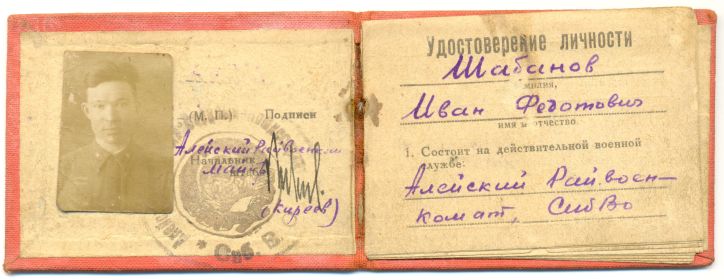 (М. П.) Подписи
Алейский Райвоенком
Начальник
(Киреев)
Сиб.
Удостоверение личности
Шабанов
милия,
Иван Федотович
имя и отчество
1. Состоит на действительной военной
службе:
Алейский Райвоен-
комат, СибВо